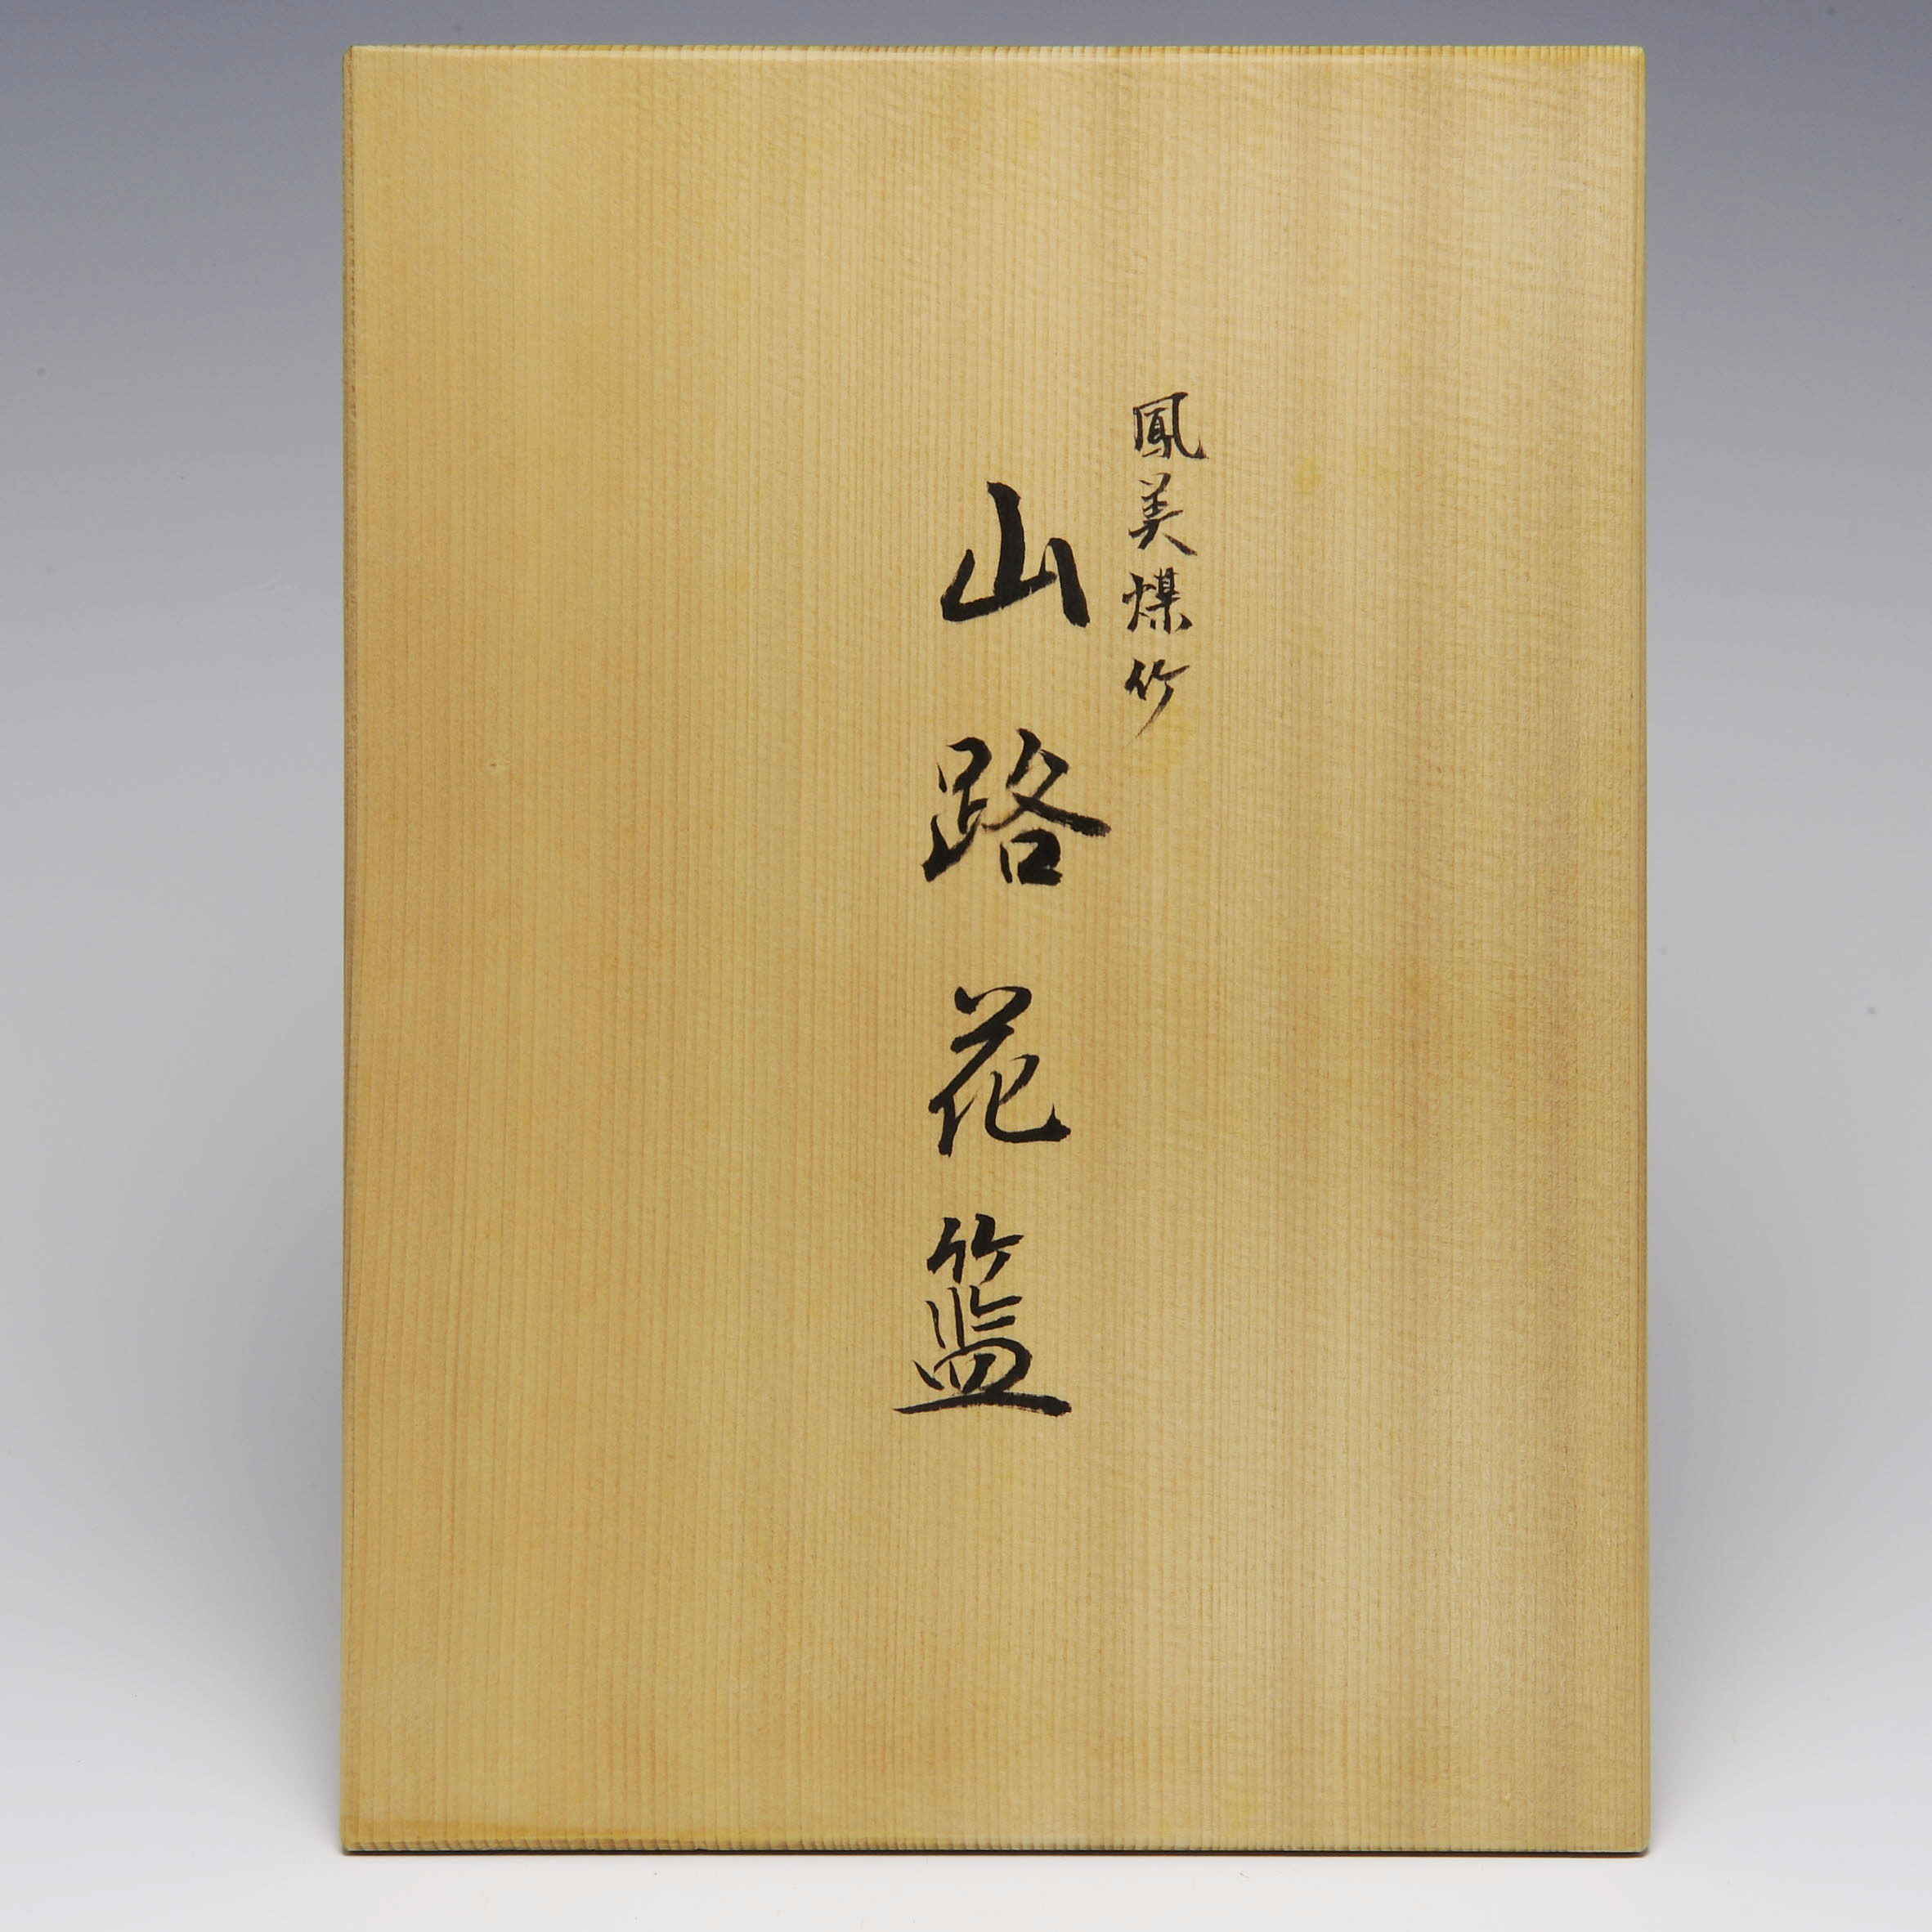 鳳美煤竹
山路花籃